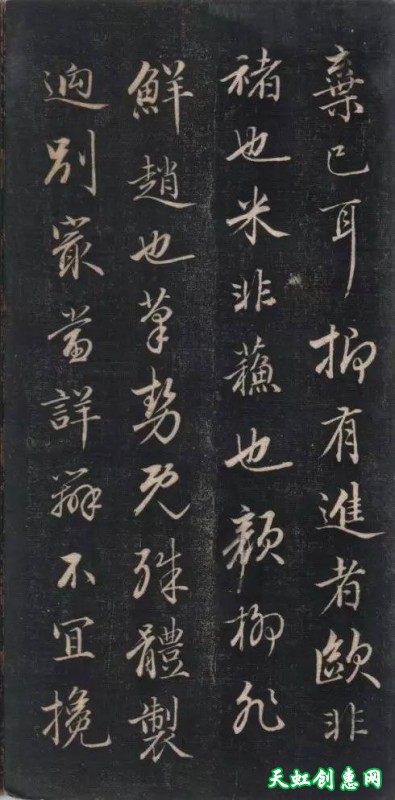 棄已耳抑有進者歐非
褚也米非蘓也顔柳非
鮮趙也筆勢既殊體製
迥別寂當詳辨不宜攙
天虹创惠网